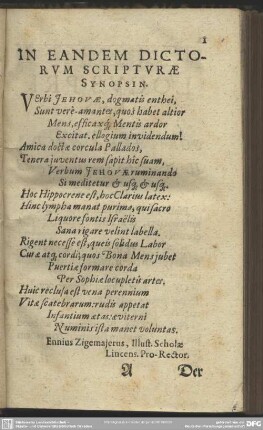 1
IN EANDEM DICTO-
RVM SCRIPTVRÆ
SYNOPSIN.
VErbi JEHOVÆ, dogmatis enthei,
Sunt verè-amantes, quos habet altior
Mens, efficaxq; Mentis ardor
Excitat, ellogium invidendum!
Amica doctæ corcula Pallados,
Tenera juventus rem sapit hic suam,
Verbum JEHOVÆ ruminando
Si meditetur & usq; & usq;.
Hoc Hippocrene est, hoc Clarius latex:
Hinc lympha manat purima, qui sacro
Liquore fontis Israëlis
Sana rigare velint labella.
Rigent necesse est, queis solidus Labor
Curæ atq; cordi; quos Bona Mens jubet
Puertiæ formare corda
Per Sophiæ locupletis artes.
Huic reclusa est vena perennium
Vitæ scatebrarum: rudis appetat
Infantium ætas: æviterni
Numinis ista manet voluntas.
Ennius Zigemajerus, Illust. Scholæ
Lincens. Pro-Rector.
A Der